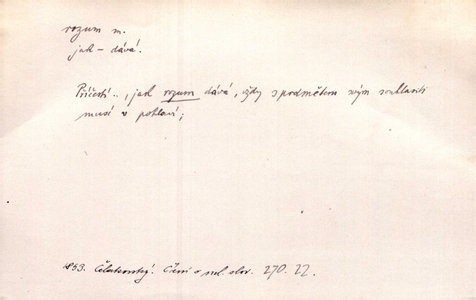 rozum m.
jak – dává.
Příčestí .., jak rozum dává, vždy s předmětem svým souhlasiti
musí v pohlaví;
1853. Čelakovský. Čtení o ml. slov. 270. 22.